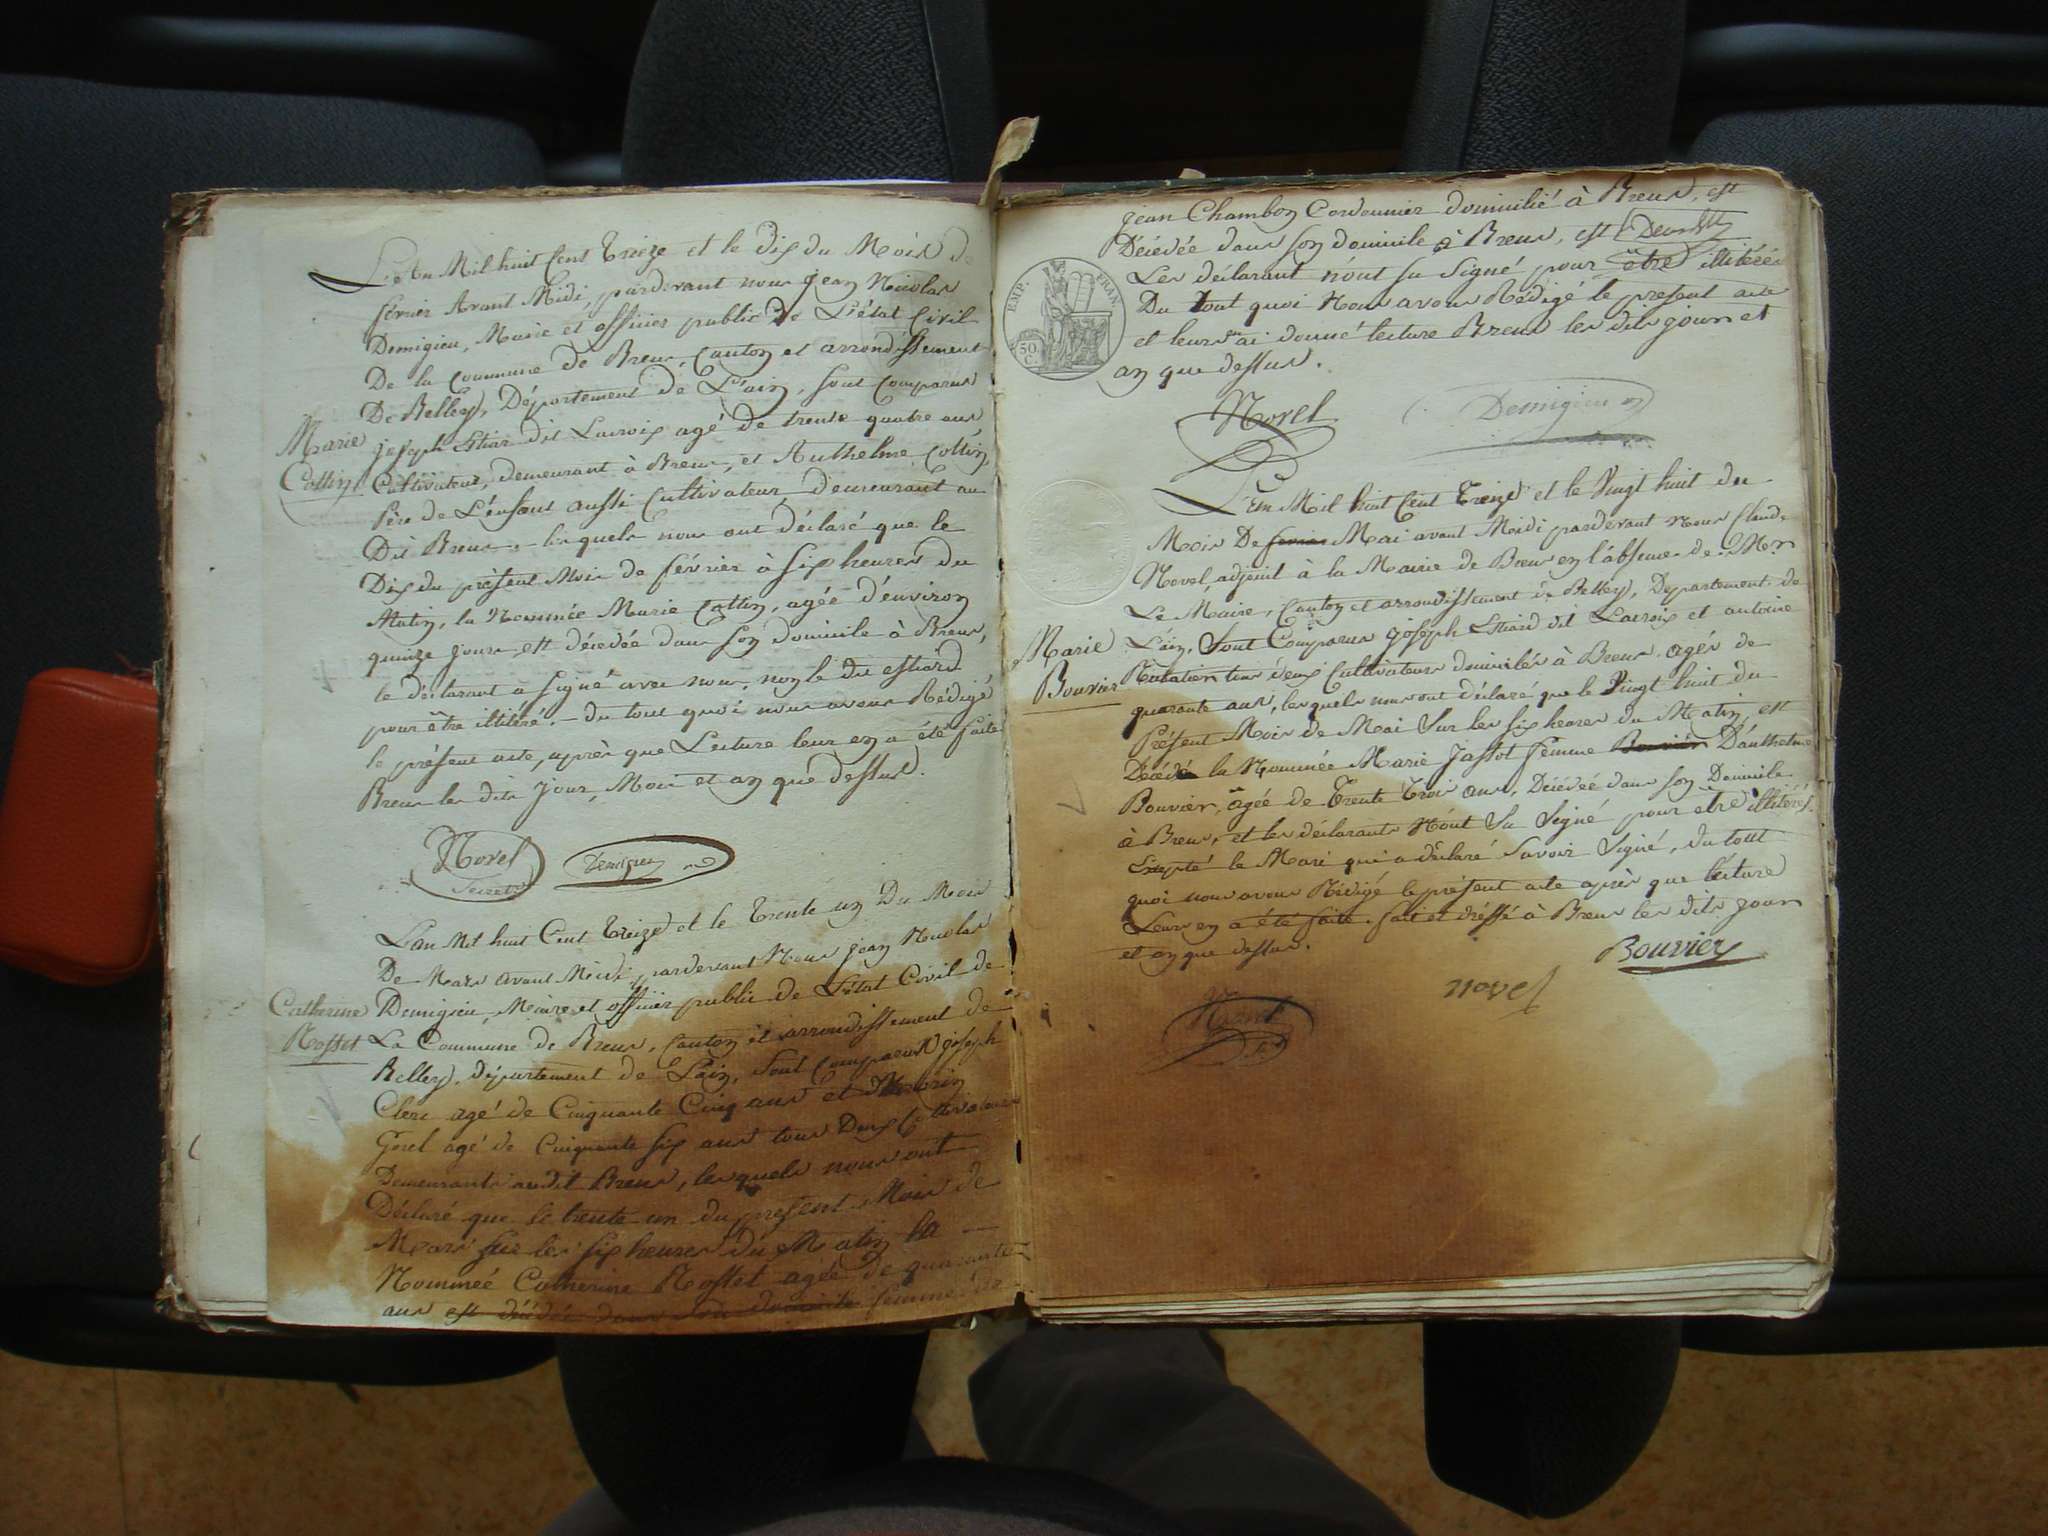 L'An Mil huit Cent Treize et le dix du Mois de
février Avant Midi, pardevant nous Jean Nicolas
Demigieu, Maire et officier public de L'état Civil
De la Commune de Brens, Canton et arrondissement
De Belley, Département de L'ain, sont comparus
Marie
Collin
joseph Estiard dit Lacroix agé de trente quatre ans,
Cultivateur, demeurant à Brens, et Anthelme Collin,
Père de L'enfant aussi Cultivateur demeurant au
Dit Brens. lesquels nous ont déclaré que le
Dix du présent Mois de février à six heures du
Matin, la Nommée Marie Collin, agée d'environ
quinze jours est décédée dans son domicile à Brens,
le déclarant a signé avec nous, non le dit estiard
pour être illitéré. du tout quoi nous avons Rédigé
le présent acte, après que Lecture leur en a été faite
Brens les dits Jour, Mois et an que dessus.
Novel
Demigieu
L'an Mil huit Cent Treize et le Trente un Du Mois
De Mars avant Midi, pardevant Nous jean Nicolas
Catherine
Rosset
Demigieu, Maire et officier public de L'état Civil de
La Commune de Brens, Canton et arrondissement de
Belley, département de L'ain, sont comparus joseph
Clerc agé de Cinquante Cinq ans et
agé de Cinquante six ans tous Deux Cultivateurs
Demeurants audit Brens, lesquels nous ont
Déclaré que le trente un du present Mois de
Mars sur les six heures du Matin la
Nommeé Catherine Rosset agée de quarante
ans est décédé dans son domicile femme de
jean Chambon Cordonnier domicilié à Brens, est
Décédée dans son domicile à Brens, est
Les déclarant n'ont su signé pour être illitérés
Du Tout quoi Nous avons Rédigé le present acte
et leurs en ai donné lecture Brens les dits jour et
an que dessus.
EMP. FRAN.
50 C.
Novel
Demigieu
L'an Mil huit Cent Treize et le Vingt huit du
Mois De fevrier Mai avant Midi pardevant Nous Claude
Novel, adjoint à la Mairie de Brens en l'absence de Mr
Le Maire, Canton et arrondissement de Belley, Departement de
Marie
Bouvier
L'ain, Sont Comparus joseph Estiard dit Lacroix et antoine
tous deux Cultivateurs domiciliés à Brens agés de
quarante ans, lesquels nous ont déclaré que le Vingt huit du
Présent Mois de Mai Sur les six heures du Matin, est
Décédé la Nommée Marie Jassot femme Bouvier D'anthelme
Bouvier, agée de Trente Trois ans, Décédeé dans son Domicile
à Brens, et les déclarants N'ont Su Signé pour être illitérés,
Excepté le Mari qui a déclaré Savoir Signé, du tout
quoi nous avons Rédigé le présent acte après que lecture
Leurs en a été faite. fait et dréssé à Brens les dits jour
et an que dessus.
Bouvier
novel
Novel